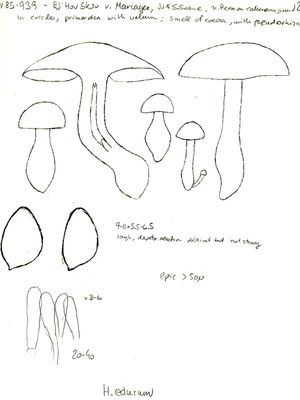 85-939 - EJ Hovskov v. Mariager,
in circle, primordia with velum; smell of cocoa, with pseudorhiza
9-11x5.5-6.5
rough, dextr. reaction distinct but not strong
epic > 50µ
x 3-6
20-40
H. edurum